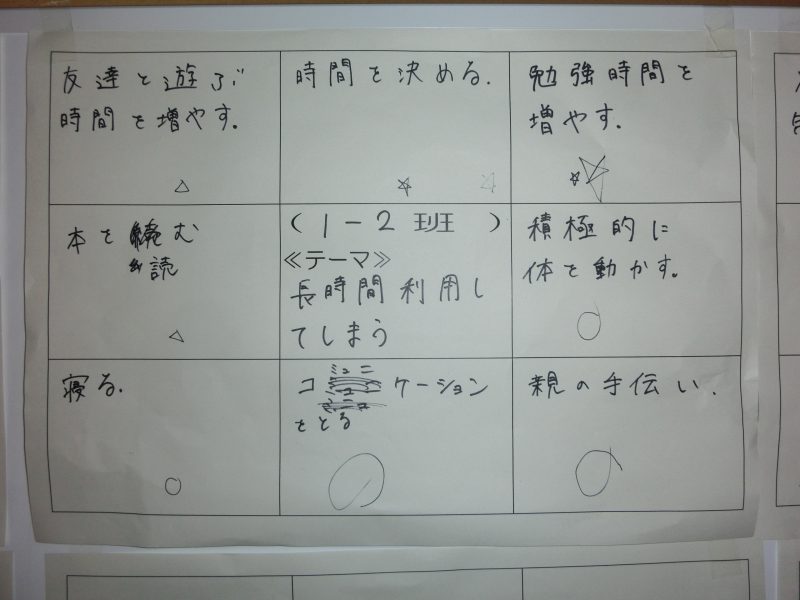 友達と遊ぶ
時間を増やす。
時間を決める.
勉強時間を
増やす。
本を む
読
(1-2 班)
≪テーマ≫
長時間利用し
てしまう
積極的に
体を動かす。
寝る.
ミュニ
コ ケーション
をとる
親の手伝い.